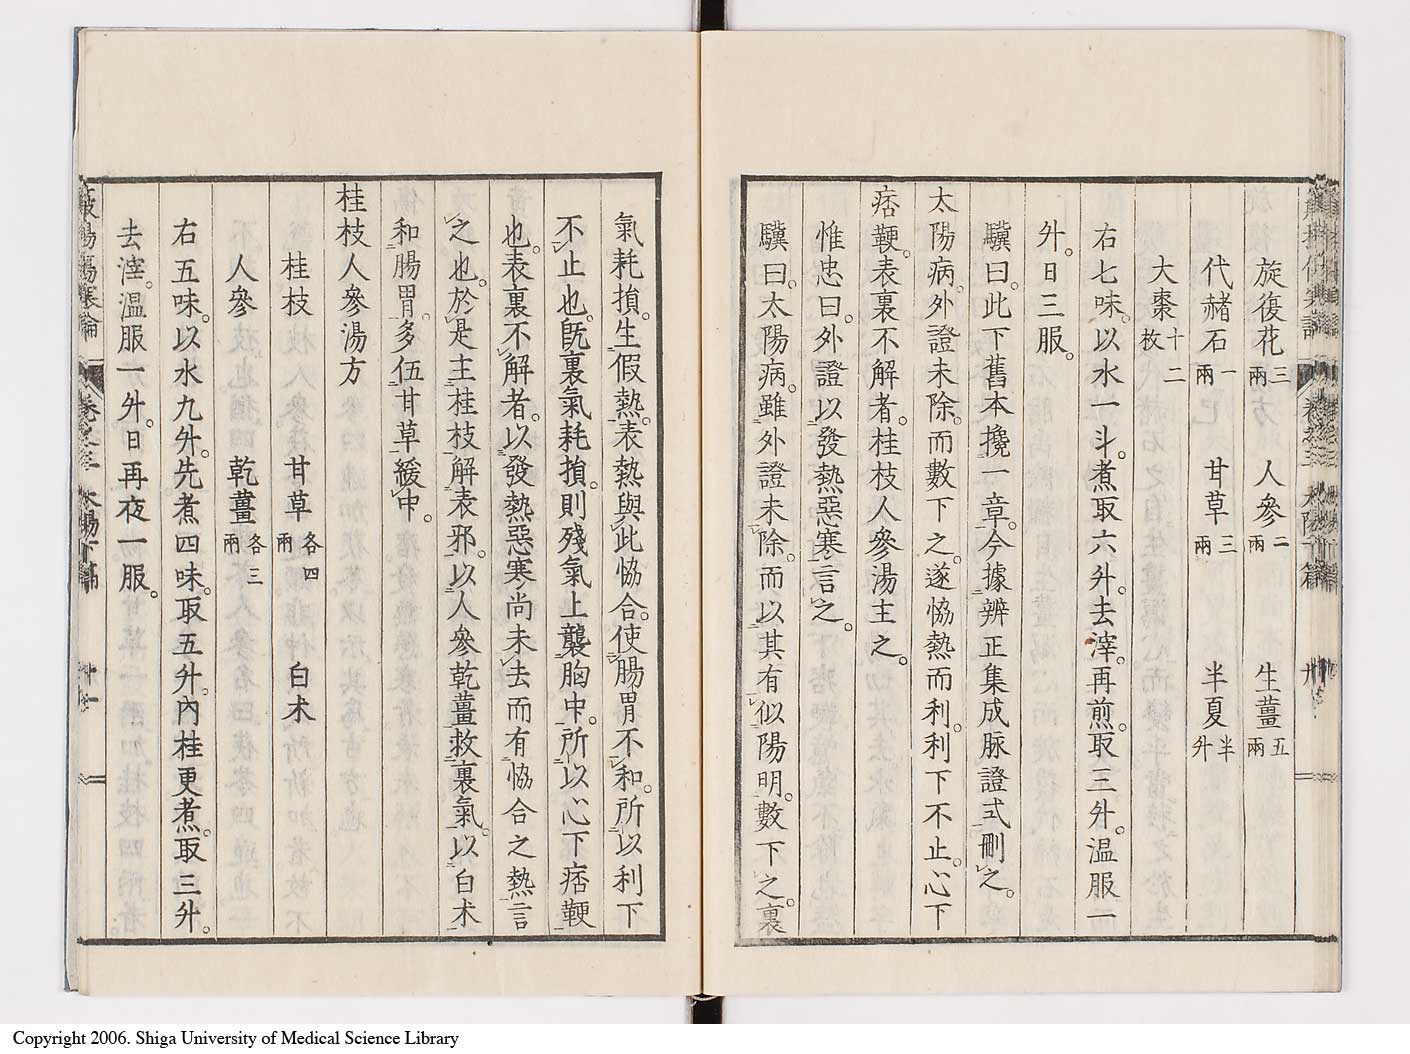 旋復花三兩 人參二兩 生薑五兩
代赭石一兩 甘草三兩 半夏半升
大棗十二枚
右七味。以水一斗。煮取六升。去滓。再煎。取三升。温服一
升。日三服。
驥曰。此下舊本攙一章。今據辨正集成脈證式刪之。
太陽病。外證未除。而數下之。遂恊熱而利。利下不止。心下
痞鞕。表裏不解者。桂枝人參湯主之。
惟忠曰。外證以發熱惡寒言之。
驥曰。太陽病。雖外證未除。而以其有似陽明。數下之。裏
氣耗損。生假熱。表熱與此恊合。使腸胃不和。所以利下
不止也。既裏氣耗損。則殘氣上襲胸中。所以心下痞鞕
也。表裏不解者。以發熱惡寒尚未去而有恊合之熱言
之也。於是主桂枝解表邪。以人參乾薑救裏氣。以白朮
和腸胃。多伍甘草緩中。
桂枝人參湯方
桂枝 甘草各四兩 白朮
人參 乾薑各三兩
右五味。以水九升。先煮四味。取五升。內桂更煮。取三升。
去滓。温服一升。日再夜一服。
傷寒論 卷之三 太陽下篇 十一
Copyright 2006. Shiga University of Medical Science Library